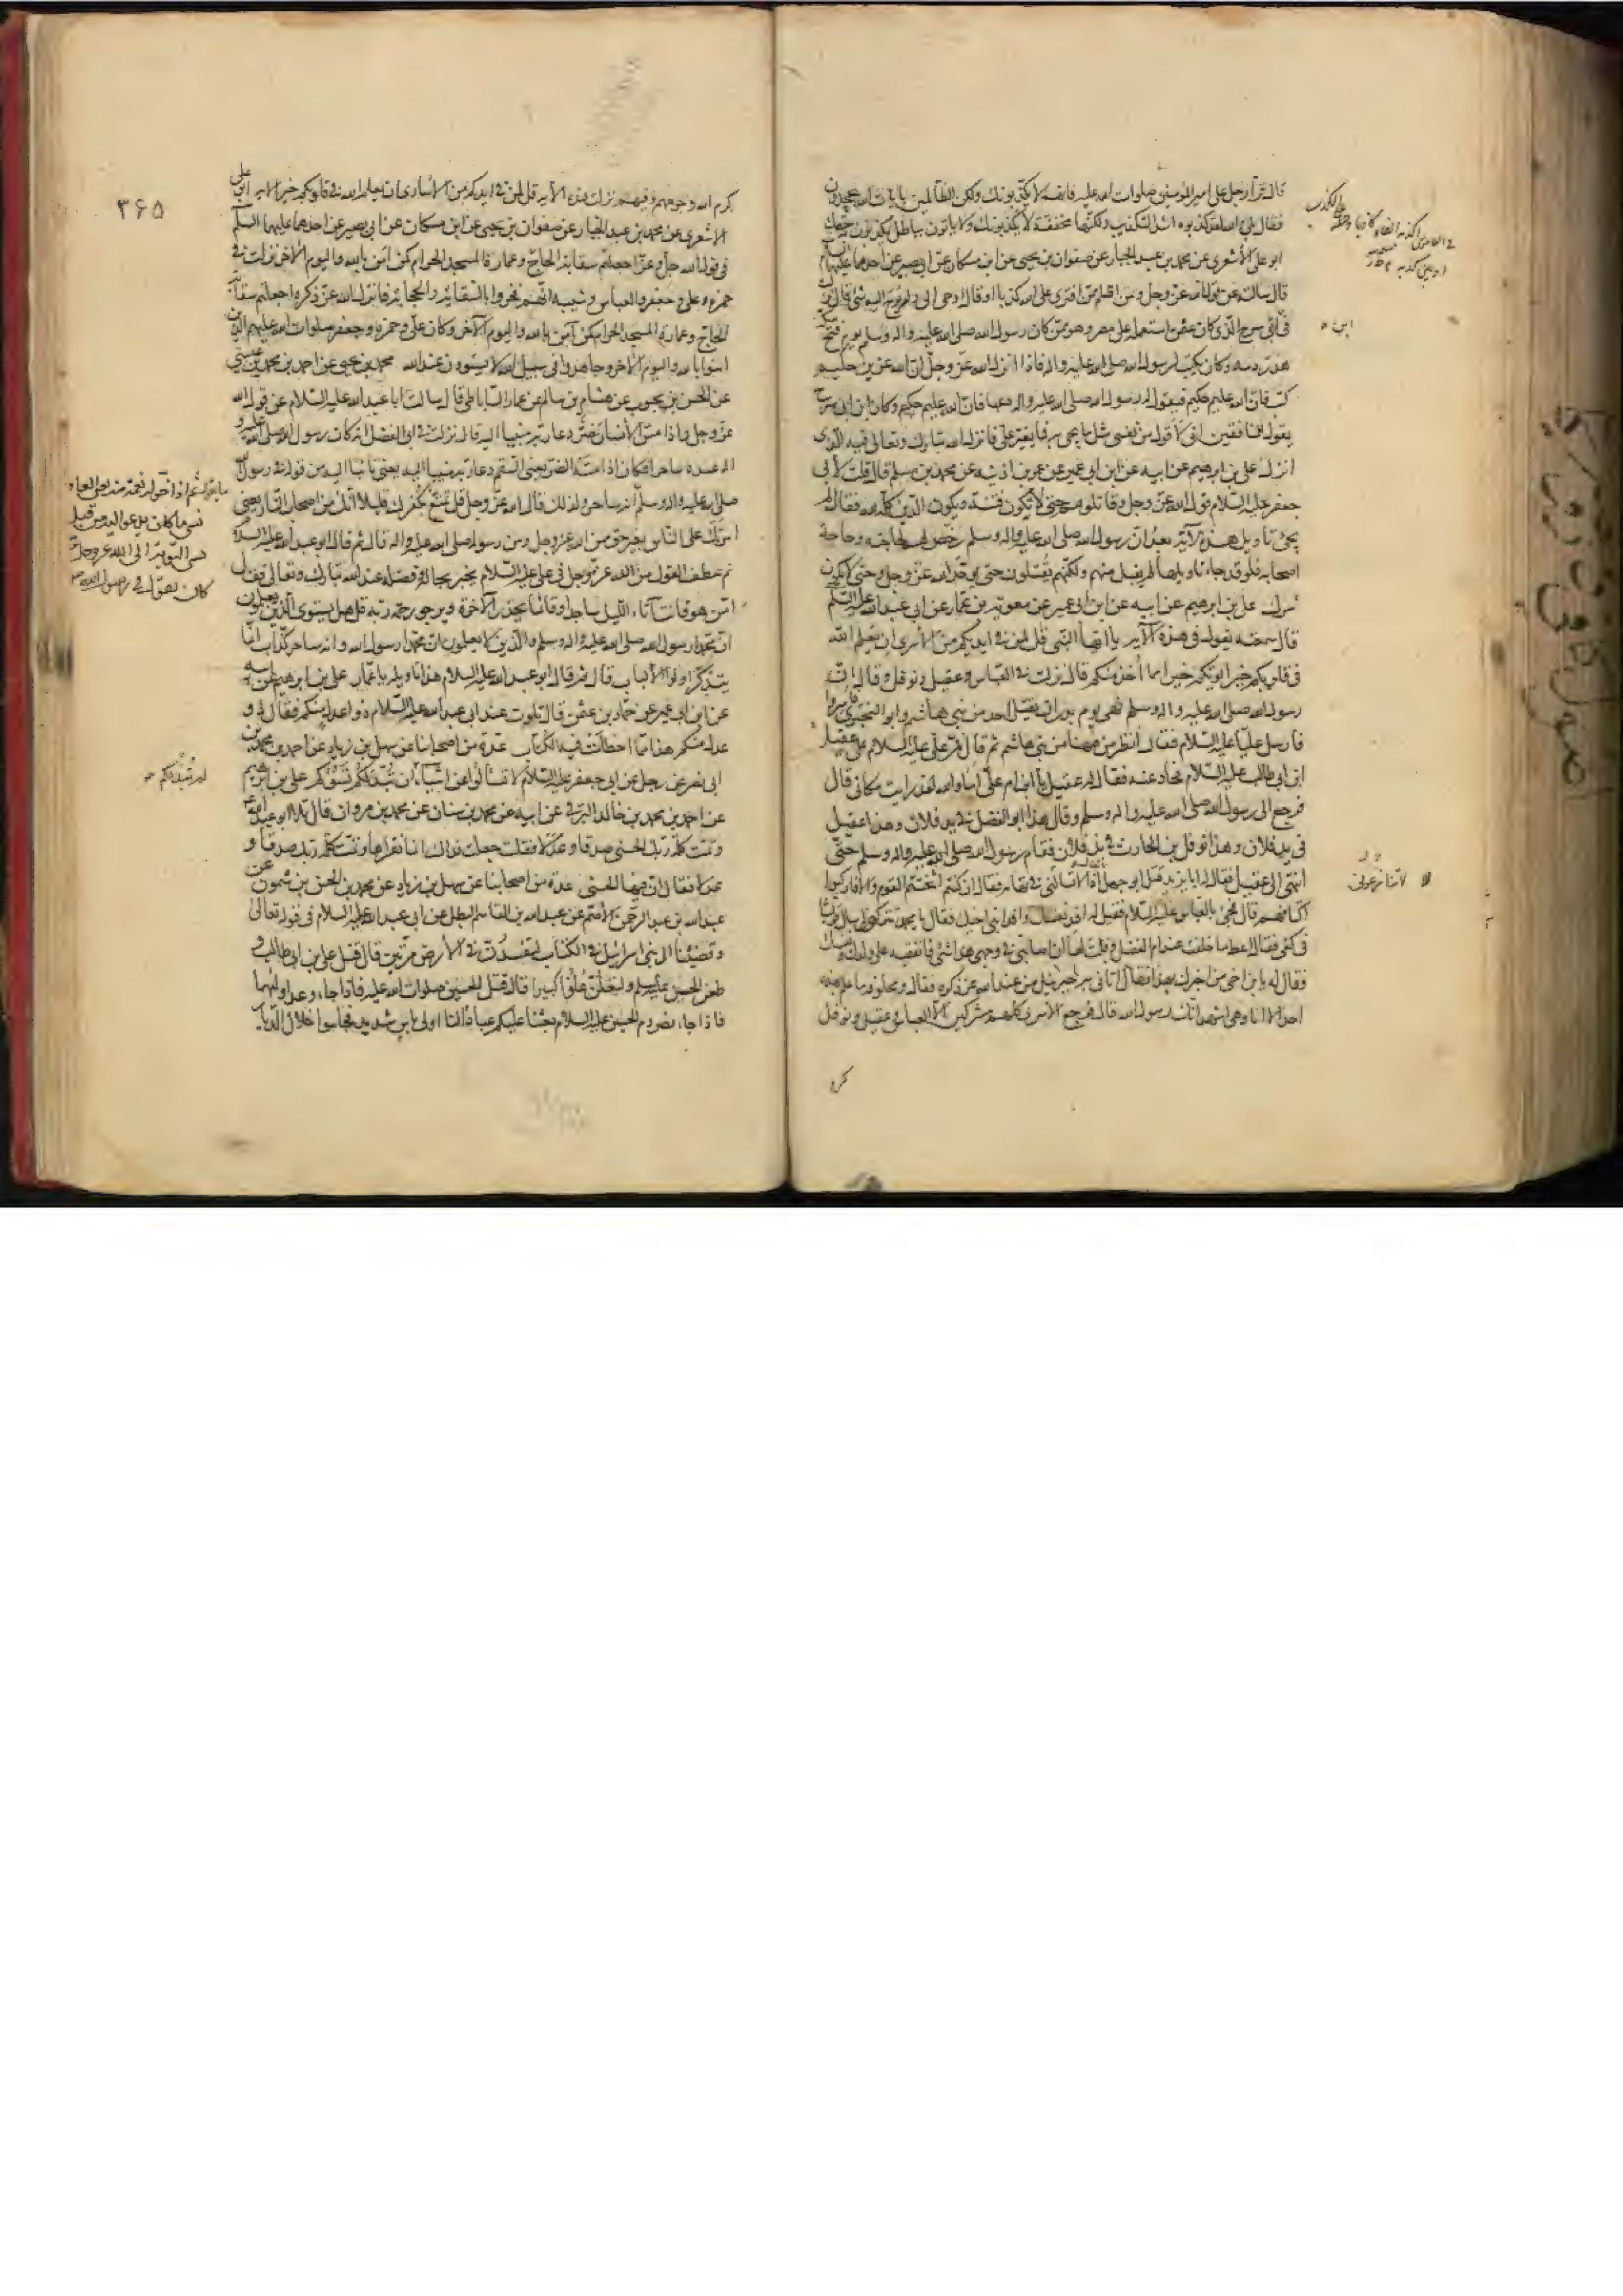 قال قرأ رجل على امير المؤمنين صلوات الله عليه فانهم لا يكذبونك ولكن الظالمين بايات الله يجحدون
فقال بلى والله لقد كذبوه اشد التكذيب ولكنها مخففة لا يكذبونك ولا ياتون بباطل يكذبون به حقك
ابو على الأشعرى عن محمد بن عبد الجبار عن صفوان بن يحيى عن ابن مسكان عن ابى بصير عن احدهما عليهما
قال سالته عن قول الله عز وجل ومن اظلم ممن افترى على الله كذبا او قال اوحى الى ولم يوح اليه شئ قال نزلت
فى ابى سرح الذى كان عثمن استعمله على مصر وهو ممن كان رسول الله صلى الله عليه واله وسلم يوم فتح مكة
هدر دمه وكان يكتب لرسول الله صلى الله عليه واله فاذا انزل الله عز وجل ان الله عزيز حكيم
كتب فان الله عليم حكيم فيقول له رسول الله صلى الله عليه واله دعها فان الله عليم حكيم وكان ابن ابى سرح
يقول للمنافقين انى لاقول من نفسى مثل ما يجئ به فما يغير على فانزل الله تبارك وتعالى فيه الذى
انزل على بن ابرهيم عن ابيه عن ابن ابى عمير عن عمر بن اذينه عن محمد بن مسلم قال قلت لأبى
جعفر عليه السلام قول الله عز وجل وقاتلوهم حتى لا تكون فتنة ويكون الدين كله لله فقال لم
يجئ تاويل هذه الآية بعد ان رسول الله صلى الله عليه واله وسلم رخص لهم لحاجته وحاجة
اصحابه فلو قد جاء تاويلها لم يقبل منهم ولكنهم يقتلون حتى يوحد الله عز وجل وحتى لا يكون
شرك على بن ابرهيم عن ابيه عن ابن ابى عمير عن معوية بن عمار عن ابى عبد الله عليه السلم
قال سمعته يقول فى هذه الآية يا ايها النبى قل لمن فى ايديكم من الأسرى ان يعلم الله
فى قلوبكم خيرا يؤتكم خيرا مما أخذ منكم قال نزلت فى العباس وعقيل ونوفل وقال ان
رسول الله صلى الله عليه واله وسلم نهى يوم بدر ان يقتل احد من بنى هاشم وابو البخترى فاسروا
فارسل عليا عليه السلام فقال انظر من ههنا من بنى هاشم ثم قال فمر على عليه السلام على عقيل
ابن ابى طالب عليه السلام فحاد عنه فقال له عقيل يا ابن ام على اما والله لقد رايت مكانى قال
فرجع الى رسول الله صلى الله عليه واله وسلم وقال هذا ابو الفضل فى يد فلان وهذا عقيل
فى يد فلان وهذا نوفل بن الحارث فى يد فلان فقام رسول الله صلى الله عليه واله وسلم حتى
انتهى الى عقيل فقال له يا با يزيد قتل ابو جهل فقال فقال ان كنتم اثخنتم القوم والا فاركبوا
اكتافهم قال فجئ بالعباس عليه السلام فقيل له افد نفسك وافد ابنى اخيك فقال يا محمد تتركنى اسال قريشا
فى كفى فقال اعط ما خلفت عند ام الفضل وقلت لها ان اصابنى فى وجهى هذا شئ فانفقيه على ولدك ونفسك
فقال له يا بن اخى من اخبرك بهذا فقال اتانى به جبرئيل من عند الله عز ذكره فقال ومحلوفه ما علم بهذا
احد الا انا وهى اشهد انك رسول الله قال فرجع الأسرى كلهم مشركين الا العباس وعقيل ونوفل
كرم
ابن
لا تنازعونى
٣۶۵
كرم الله وجوههم وفيهم نزلت هذه الآية قل لمن فى ايديكم من الأسارى ان يعلم الله فى قلوبكم خيرا الآية ابو على
الاشعرى عن محمد بن عبد الجبار عن صفوان بن يحيى عن ابن مسكان عن ابى بصير عن احدهما عليهما السلم
فى قول الله جل وعز اجعلتم سقاية الحاج وعمارة المسجد الحرام كمن آمن بالله واليوم الآخر نزلت فى
حمزه وعلى وجعفر والعباس وشيبه انهم فخروا بالسقاية والحجابة فانزل الله عز ذكره اجعلتم سقاية
الحاج وعمارة المسجد الحرام كمن آمن بالله واليوم الآخر وكان على وحمزه وجعفر صلوات الله عليهم الذين
امنوا بالله واليوم الآخر وجاهدوا فى سبيل الله لا يستوون عند الله محمد بن يحيى عن احمد بن محمد بن عيسى
عن الحسن بن محبوب عن هشام بن سالم عن عمار الساباطى قال سالت ابا عبد الله عليه السلام عن قول الله
عز وجل واذا مس الأنسان ضر دعا ربه منيبا اليه قال نزلت فى ابى الفضل انه كان رسول الله صلى الله عليه و
اله عنده ساحرا فكان اذا مسه الضر يعنى السقم دعا ربه منيبا اليه يعنى تائبا اليه من قوله فى رسول الله
صلى الله عليه واله وسلم انه ساحر ولذلك قال الله عز وجل قل تمتع بكفرك قليلا انك من اصحاب النار يعنى
امرتك على الناس بغير حق من الله عز وجل ومن رسوله صلى الله عليه واله قال ثم قال ابو عبد الله عليه السلام
ثم عطف القول من الله عز وجل فى على عليه السلام يخبر بحاله وفضله عند الله تبارك وتعالى فقال
امن هو قانت آناء الليل ساجدا وقائما يحذر الآخرة ويرجو رحمة ربه قل هل يستوى الذين يعلمون
ان محمدا رسول الله صلى الله عليه واله وسلم والذين لا يعلمون ان محمدا رسول الله وانه ساحر كذاب انما
يتذكر اولوا الألباب قال ثم قال ابو عبد الله عليه السلام هذا تاويله يا عمار على بن ابرهيم عن ابيه
عن ابن ابى عمير عن حماد بن عثمن قال تلوت عند ابى عبد الله عليه السلام ذوا عدل منكم فقال ذو
عدل منكم هذا مما اخطأت فيه الكتاب عدة من اصحابنا عن سهل بن زياد عن احمد بن محمد بن
ابى نصر عن رجل عن ابى جعفر عليه السلام لا تسألوا عن اشياء ان تبد لكم تسؤكم على بن ابرهيم
عن احمد بن محمد بن خالد البرقى عن ابيه عن محمد بن سنان عن محمد بن مروان قال تلا ابو عبد الله
وتمت كلمة ربك الحسنى صدقا وعدلا فقلت جعلت فداك انما نقراها وتمت كلمة ربك صدقا و
عدلا فقال ان فيها الحسنى عدة من اصحابنا عن سهل بن زياد عن محمد بن الحسن بن شمون عن
عبد الله بن عبد الرحمن الأصم عن عبد الله بن القاسم البطل عن ابى عبد الله عليه السلام فى قوله تعالى
وقضينا الى بنى اسرائيل فى الكتاب لتفسدن فى الأرض مرتين قال قتل على بن ابى طالب و
طعن الحسن عليه السلم ولتعلن علوا كبيرا قال قتل الحسين صلوات الله عليه فاذا جاء وعد اوليهما
فاذا جاء نصر دم الحسين عليه السلام بعثنا عليكم عبادا لنا اولى باس شديد فجاسوا خلال الديار
ثم اذا خوله نعمة منه يعنى العافية
نسى ما كان يدعوا اليه من قبل
نسى التوبة الى الله عز وجل مما
كان يقول فى رسول الله
لم تبد لكم